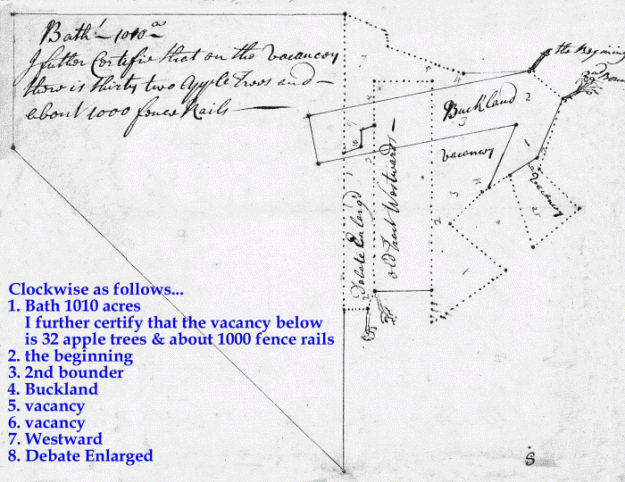 Bath 1010 as
I futher Certifie that on the vacancy
there is thirty two apple trees and
about 1000 fence Rails
the Begining
2nd Boun
Buckland
vacancy
vacancy
Debate Enlargd
old Tract Westwards
S
Clockwise as follows...
1. Bath 1010 acres
I further certify that the vacancy below
is 32 apple trees & about 1000 fence rails
2. the beginning
3. 2nd bounder
4. Buckland
5. vacancy
6. vacancy
7. Westward
8. Debate Enlarged